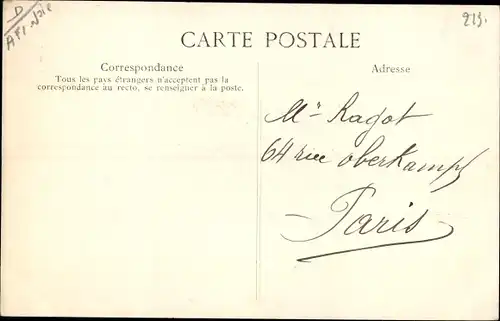 D
213.
CARTE POSTALE
Correspondance
Tous les pays étrangers n'acceptent pas la
correspondance au recto, se renseigner à la poste.
Adresse
Mr Ragot
64 rue Oberkampf
Paris